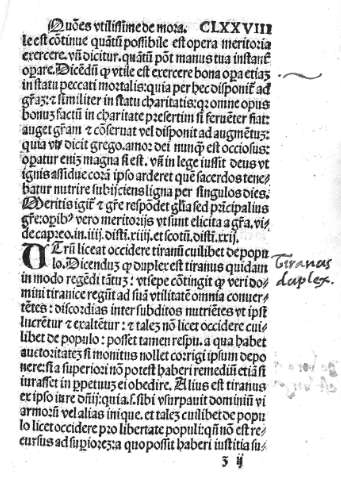 Quões vtilissime de mora. CLXXVIII
le est cõtinue quãtũ possibile est opera meritoria
exercere. vñ dicitur. quãtũ põt manus tua instant̃
opare. Dicẽdũ ꝙ vtile est exercere bona opa etiaʒ
in statu peccati mortalis: quia per hec disponit̃ ad
gr̃aʒ: ⁊ similiter in statu charitatis: qꝛ omne opus
bonuʒ factũ in charitate presertim si feruẽter fiat:
auget gr̃am ⁊ cõseruat vel disponit ad augmẽtuʒ:
quia vt dicit grego. amor dei nunqʒ est occiosus:
opatur enim magna si est. vñ in lege iussit deus vt
ignis assidue corã ipso arderet quẽ sacerdos tene-
batur nutrire subijciens ligna per singulos dies.
Meritis igit̃ ⁊ gr̃e respõdet gl̃ia sed pꝛincipalius
gr̃e: oꝑibꝰ vero meritorijs vt sunt elicita a gr̃a. vi-
de capꝛeo. in .iiij. disti. xiiij. et scotũ. disti. xxij.
Utrũ liceat occidere tirannũ cuilibet de popu
lo. Dicenduʒ ꝙ duplex est tiranus quidam
in modo regẽdi tãtuʒ: vt sepe cõtingit ꝙ veri do-
mini tiranice regũt ad suã vtilitatẽ omnia conuer-
tẽtes: discordias inter subditos nutriẽtes vt ipsi
lucrẽtur ⁊ exaltẽtur: ⁊ talẽ nõ licet occidere cui-
libet de populo: posset tamen respu. a qua habet
auctoritateʒ si monitus nollet corrigi ipsum depo
nere: si a superiori nõ potest haberi remediũ etiã si
iurasset in ꝑpetuuʒ ei obedire. Alius est tiranus
ex ipso iure dñij: quia .s. sibi vsurpauit dominiũ vi
armorũ vel alias inique. et taleʒ cuilibet de popu
lo licet occidere pro libertate populi: qñ nõ est re-
cursus ad superioreʒ: a quo possit haberi iustitia su-
ʒ ij
Tiranus
duplex.